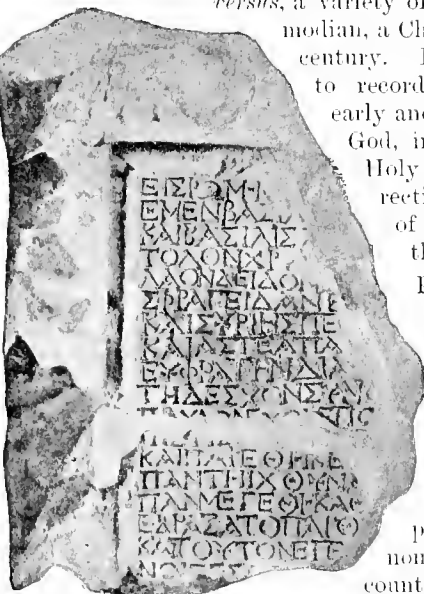 versus, a variety of
modian, a Ch
century.
to record
early and
God, in
Holy
recti
of
th
nom
count
ΕΙΣΡΩΜ
ΕΜΕΝΒΑΣ
ΚΑΙΒΑΣΙΛΙΣ
ΤΟΛΟΝΧΡ
ΛΑΟΝΔΕΙΔΟΝ
ΣΦΡΑΓΕΙΔΑΝΕ
ΚΑΙΣΥΡΙΗΣΠΕ
ΚΑΙΑΣΤΕΑΠΑ
ΕΥΦΡΑΤΗΝΔΙΑ
ΤΗΔΕΣΧΟΝΣΥΝΟ
ΚΑΙΠΑΡΕΘΗΚΕ
ΠΑΝΤΗΙΧΘΥΝΑ
ΠΑΝΜΕΓΕΘΗΚΑΘ
ΕΔΡΑΞΑΤΟΠΑΡΘ
ΚΑΙΤΟΥΤΟΝΕΠΕ